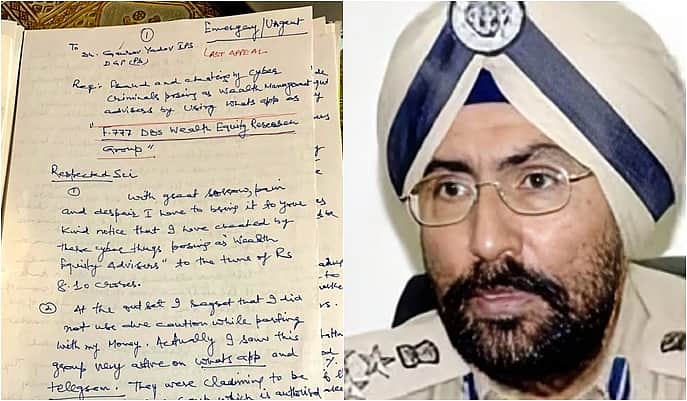 ①
Emergency/Urgent
To
Sh. Gaurav Yadav IPS
DGP (Pb)
LAST APPEAL
Reg: Fraud and cheating by cyber
criminals posing as Wealth Management
advisers by using Whats app as
"F.777 DBS Wealth Equity Research
Group"
Respected Sir
① with great sorrow, pain
and despair I have to bring it to your
kind notice that I have cheated by
these cyber thugs posing as "Wealth
Equity Advisers" to the tune of Rs
8.10 crores.
② At the outset I regret that I did
not use due caution while parting
with my Money. Actually I saw this
group very active on whats app and
telegram. They were claiming to be
which is authorised